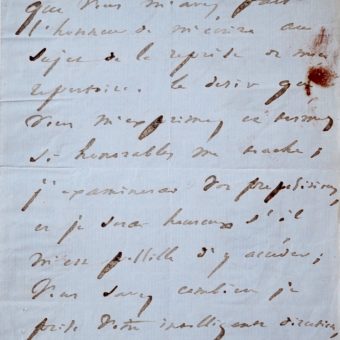 que vous m'avez fait
l'honneur de m'écrire au
sujet de la reprise de mon
repertoire. Le desir que
vous m'exprimez en termes
si honorables me touche ;
j'examinerai vos propositions,
et je serai heureux s'il
m'est possible d'y accéder ;
Vous savez combien je
prise votre intelligente direction,